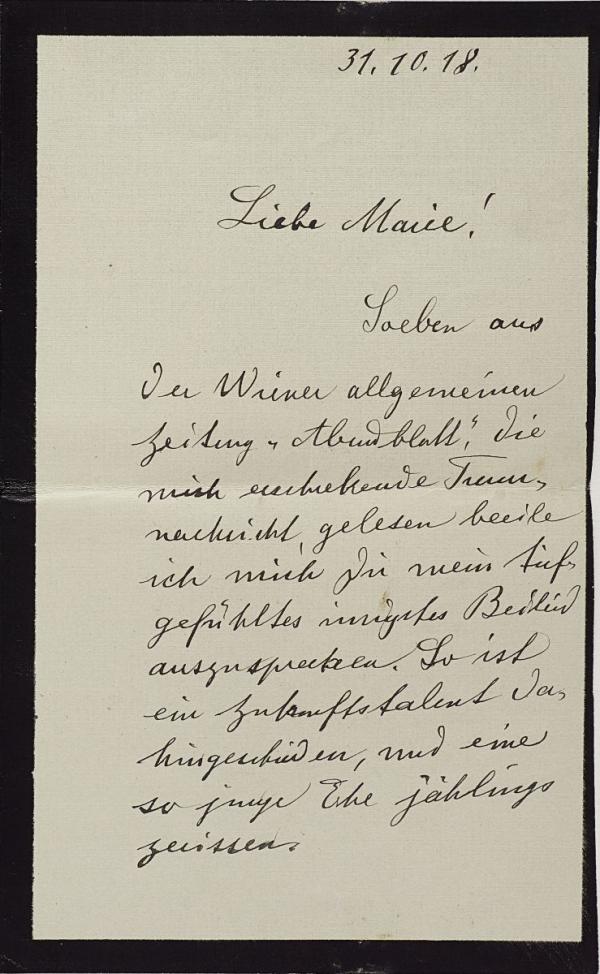 31. 10. 18.
Liebe Marie!
Soeben aus
der Wiener allgemeinen
Zeitung "Abendblatt", die
mich erschrekende Trauer-
nachricht gelesen beeile
ich mich Dir mein tief-
gefühltes innigstes Beileid
auszusprechen. So ist
ein Zukunftstalent da-
hingeschieden, und eine
so junge Ehe jählings
zerissen.